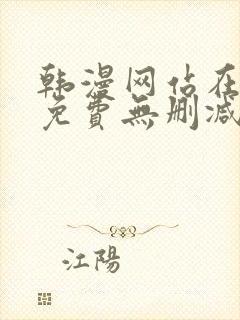 韩漫网站在
免費無删减
江陽